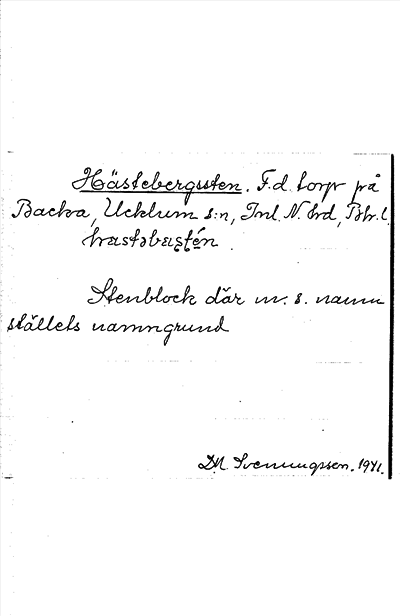 Hästebergssten. F.d. torp på
Backa, Ucklum s:n, Inl. N. hrd, Bh. l.
hæstəbæʂtén
Stenblock där m. s. namn
ställets namngrund
DM. Svenningsson. 1941.